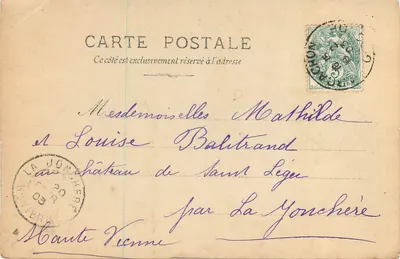 CARTE POSTALE
Ce côté est exclusivement réservé à l'adresse
ARCACHON
5
Mesdemoiselles Mathilde
et Louise Balitrand
au château de Saint Légu
par La Jonchère
Haute Vienne
LA JONCHERE
20
03